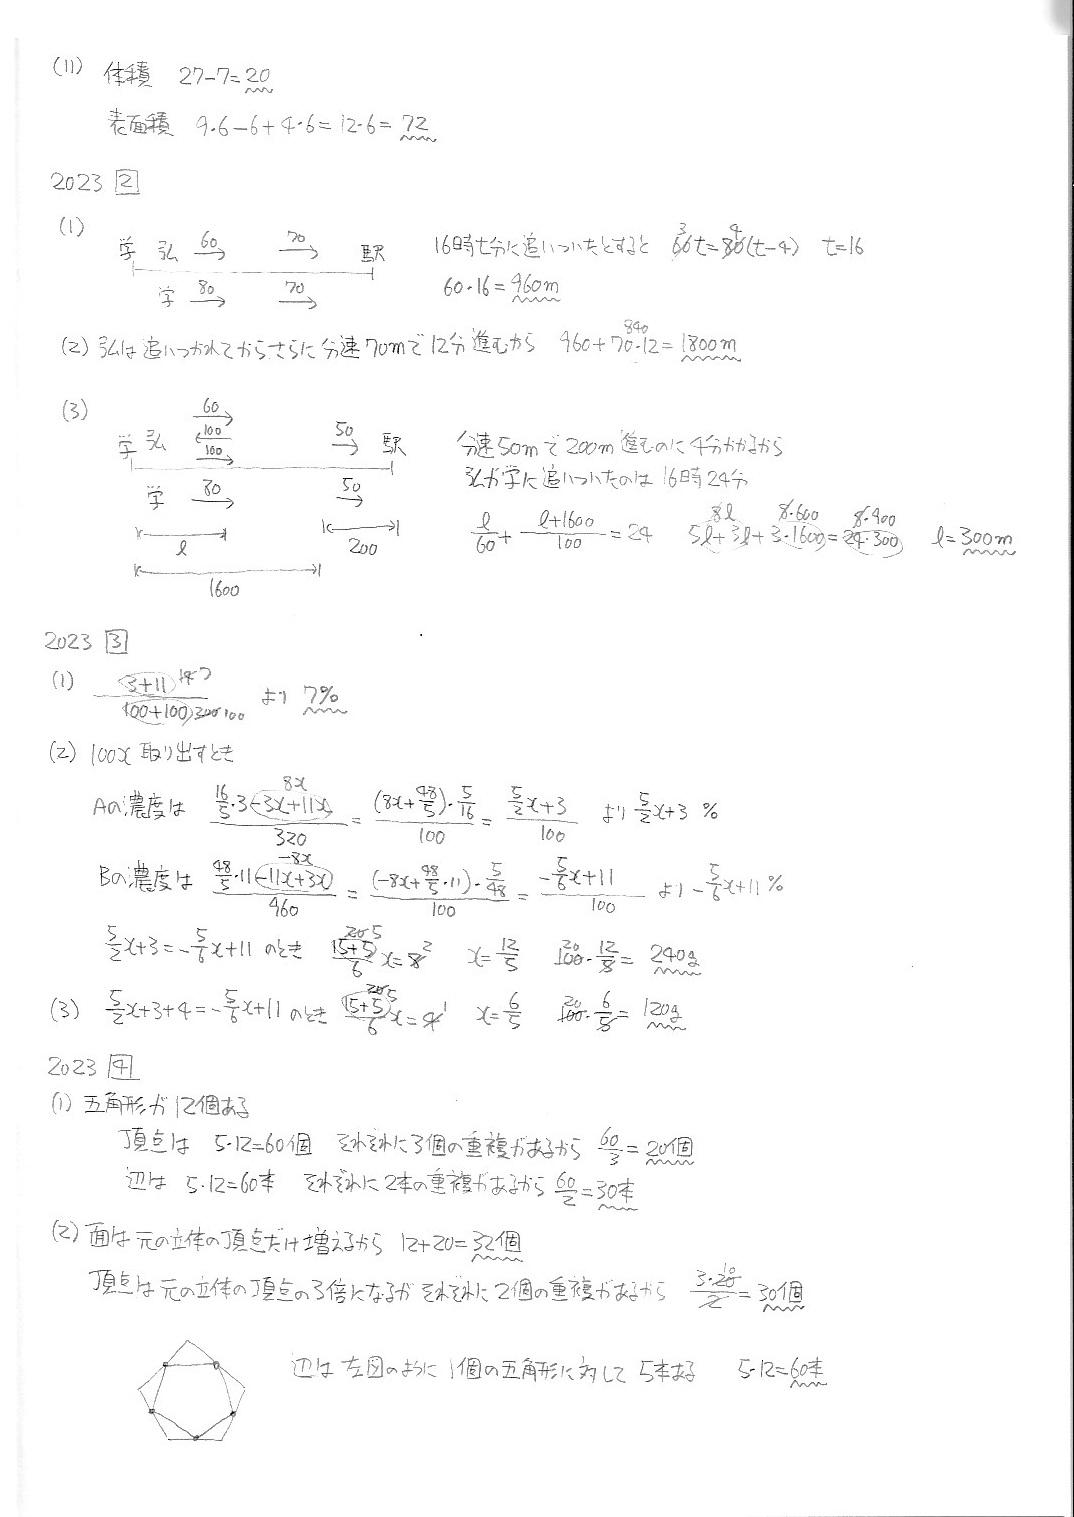 (11) 体積 27-7=20
表面積 9・6-6+4・6=12・6=72
2023 2
(1)
学 弘 60 70 駅 16時t分に追いついたとすると 60t=80(t-4) t=16
3 4
学 80 70 60・16=960m
(2) 弘は追いつかれてからさらに分速70mで12分進むから 960+70・12=1800m
840
(3)
60
100
学 弘 100 50 駅 分速50mで200m進むのに4分かかるから
弘が学に追いついたのは16時24分
学 80 50
l/60+(l+1600)/100=24 5l+3l+3・1600=24・300 l=300m
8l 8・600 8・900
l 200
1600
2023 3
(1) (3+11)/(100+100) より 7%
14 7 200 100
(2) 100x取り出すとき
Aの濃度は (16/5・3-3x+11x)/320=((8x+48/5)・5/16)/100=(5/2x+3)/100 より 5/2x+3 %
8x
Bの濃度は (48/5・11-11x+3x)/460=((-8x+48/5・11)・5/48)/100=(-5/6x+11)/100 より -5/6x+11%
-8x
5/2x+3=-5/6x+11 のとき (15+5)/6x=8 x=12/5 100・12/5=240g
20 5 2 20
(3) 5/2x+3+4=-5/6x+11 のとき (15+5)/6x=4 x=6/5 100・6/5=120g
20 5 1 20
2023 4
(1) 五角形が12個ある
頂点は 5・12=60個 それぞれに3個の重複があるから 60/3=20個
辺は 5・12=60本 それぞれに2本の重複があるから 60/2=30本
(2) 面は元の立体の頂点だけ増えるから 12+20=32個
頂点は元の立体の頂点の3倍になるがそれぞれに2個の重複があるから 3・20/2=30個
10
辺は左図のように1個の五角形に対して5本ある 5・12=60本